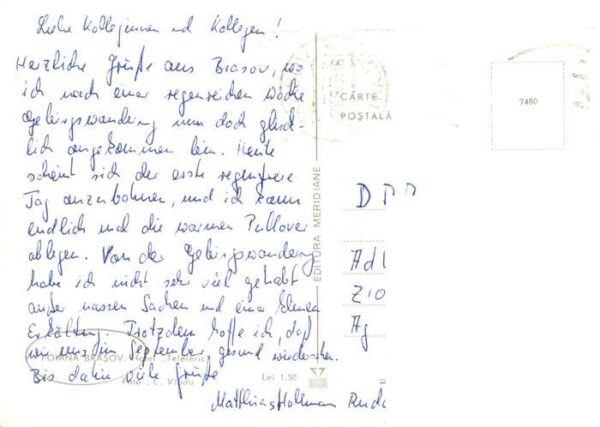 Liebe Kolleginnen und Kollegen!
Herzliche Grüße aus Brasov, wo
ich nach einer regenreichen Woche
Gebirgswanderung nun doch glück-
lich angekommen bin. Heute
scheint sich der erste regenfreie
Tag anzubahnen, und ich kann
endlich mal die warmen Pullover
ablegen. Von der Gebirgswanderung
habe ich nicht sehr viel gehabt
außer nassen Sachen und einer kleinen
Erkältung. Trotzdem hoffe ich, daß
wir uns im September gesund wiedersehen.
Bis dahin viele Grüße
Matthias Hollmann
POIANA BRAȘOV. Hotel „Teleferic”
Foto: C. Vladu
Lei 1,50
EDITURA MERIDIANE
CARTE
POȘTALĂ
7480
DDR
Adl
Zio
Ag